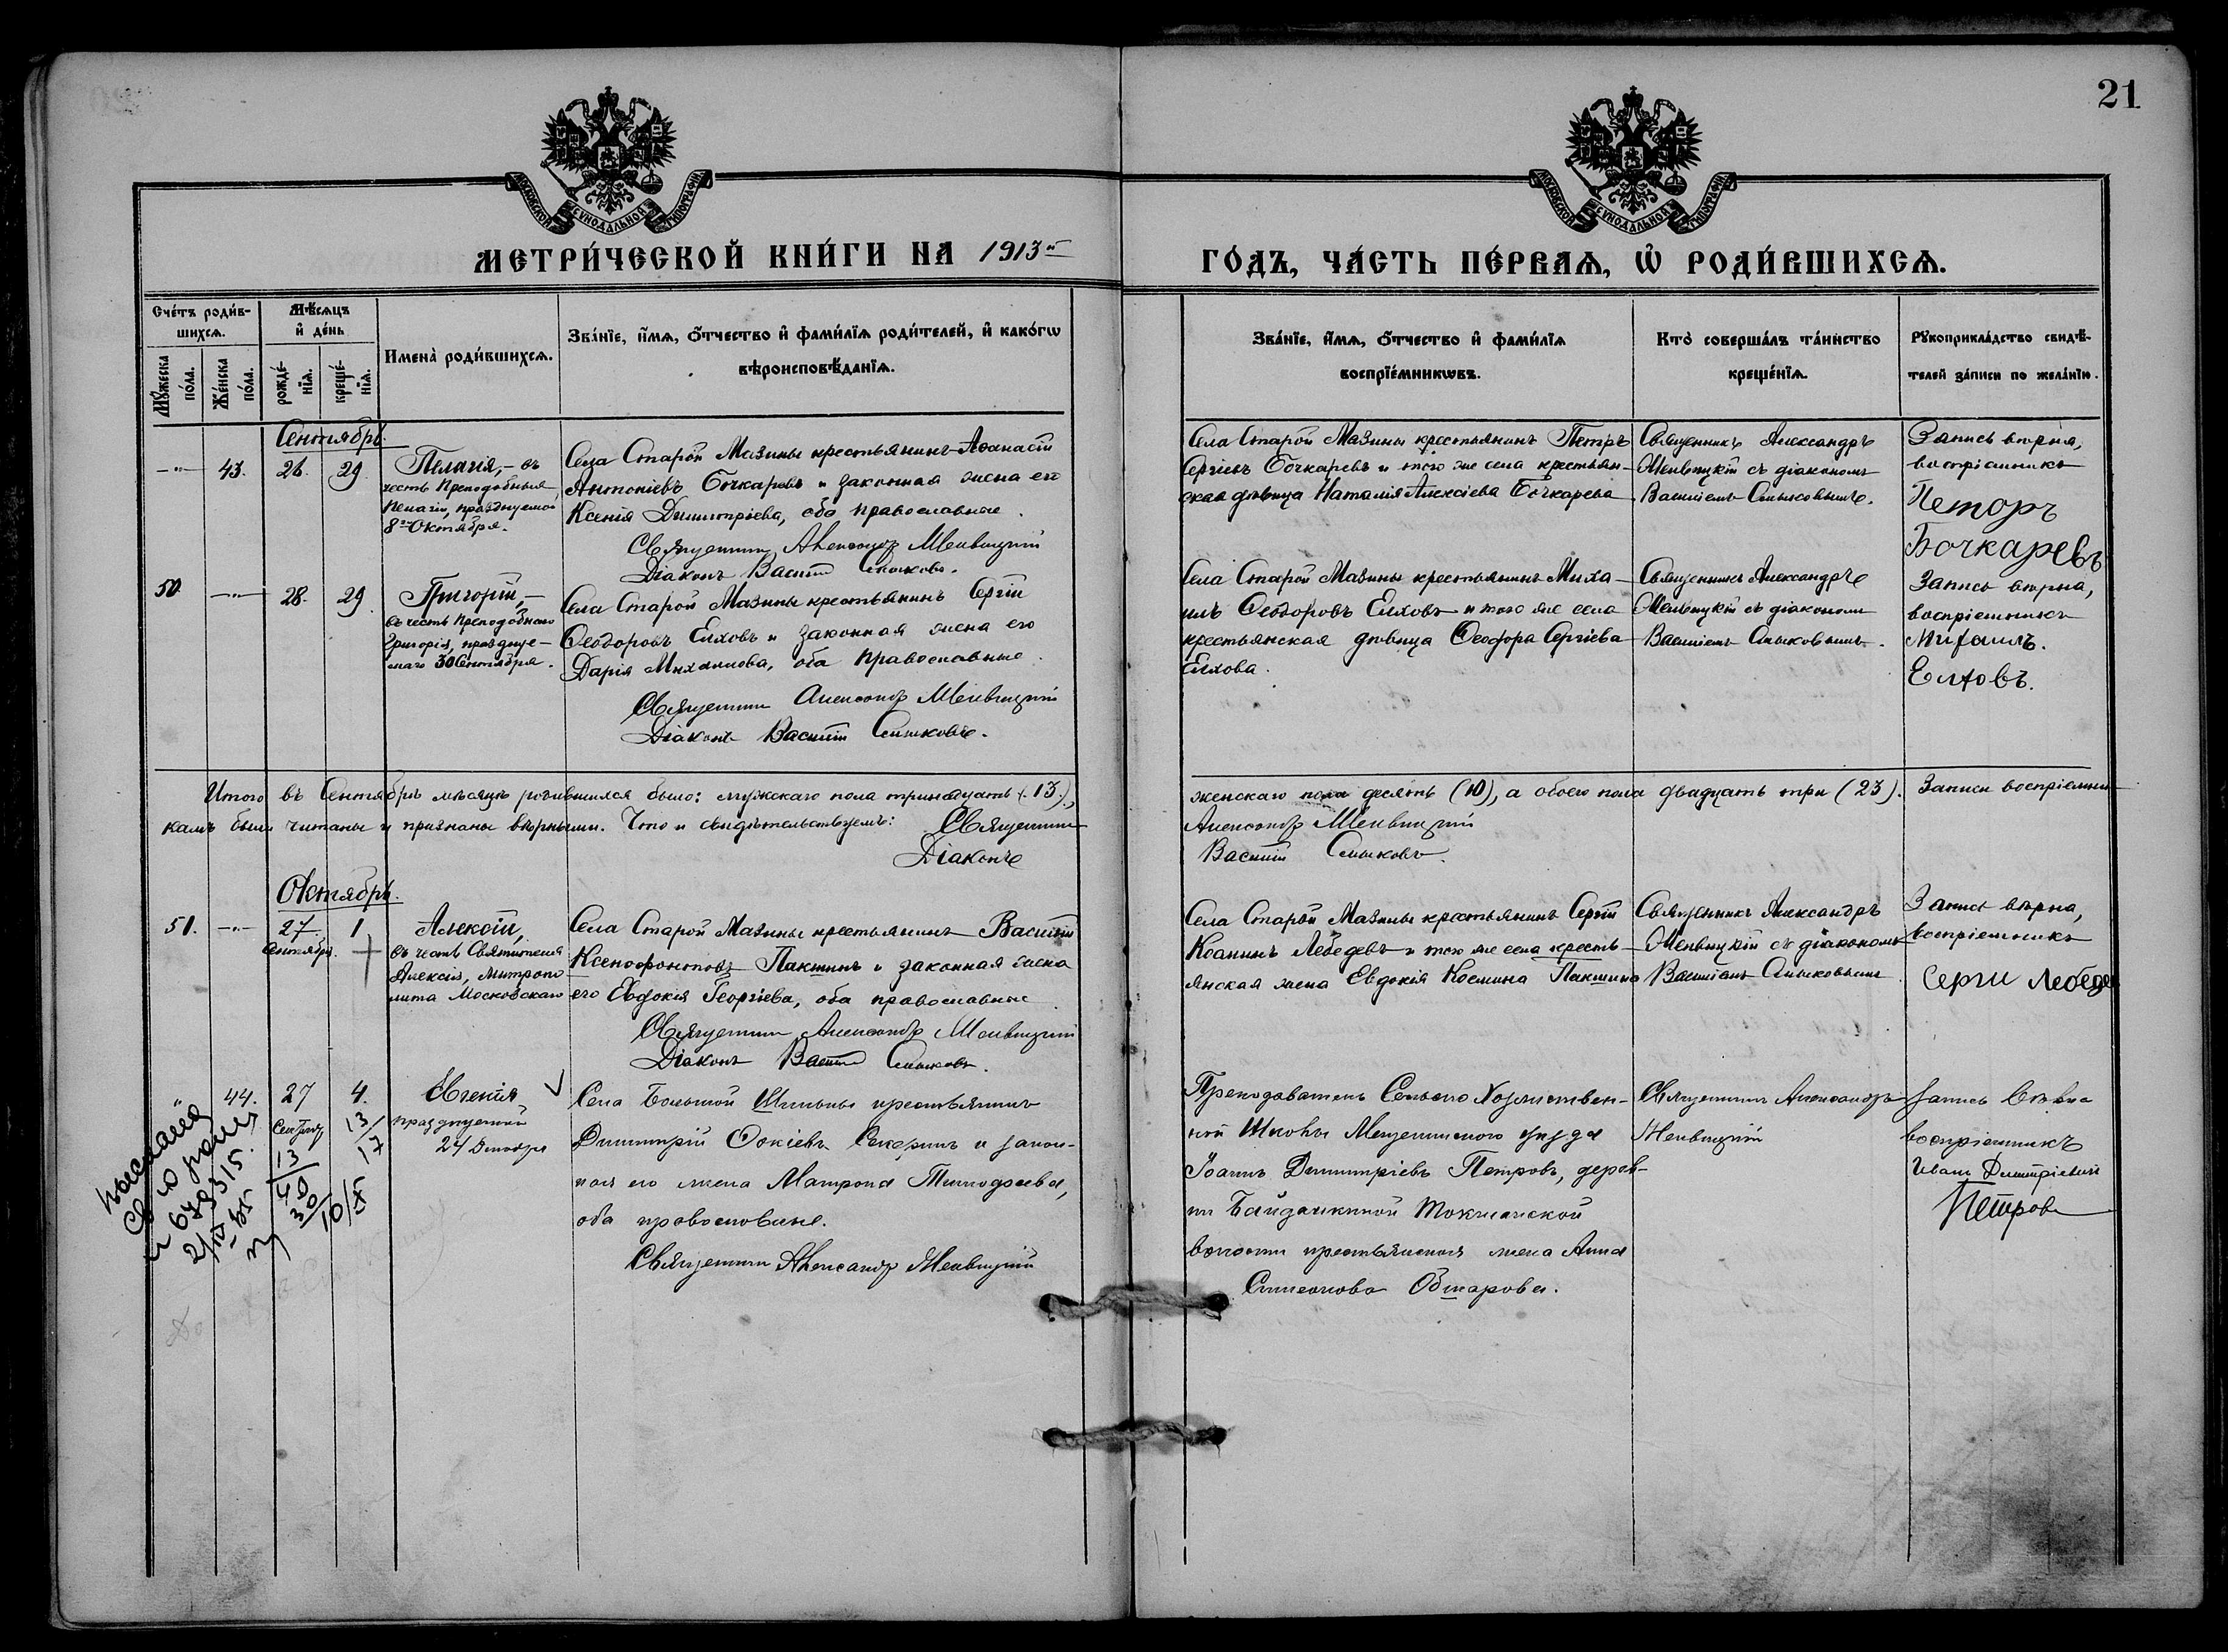 21
МОСКОВСКОЙ СѴНОДАЛЬНОЙ ТИПОГРАФІИ
МОСКОВСКОЙ СѴНОДАЛЬНОЙ ТИПОГРАФІИ
МЕТРИ́ЧЕСКОЙ КНИ́ГИ НА 1913й
ГО́ДЪ, ЧА́СТЬ ПЕ́РВАѦ, Ѡ РОДИ́ВШИХСѦ.
Сче́тъ роди́в-
шихсѧ.
Мѣ́сѧцъ
и҆ де́нь
Мꙋ́жеска
по́ла.
Же́нска
по́ла.
рожде́-
нїѧ.
креще́-
нїѧ.
Имена̀ роди́вшихсѧ.
Зва́нїе, и҆́мѧ, ѻ҆́тчество и҆ фами́лїѧ роди́телей, и҆ како́гѡ
вѣроисповѣ́данїѧ.
Зва́нїе, и҆́мѧ, ѻ҆́тчество и҆ фами́лїѧ
воспрїе́мникѡвъ.
Кто̀ соверша́лъ та́инство
креще́нїѧ.
Рꙋкоприкла́дство свидѣ́-
телей за́писи по жела́нїю.
Сентябрь.
-"- 43. 26. 29
Пелагія, - въ
честь Преподобныя
Пелагіи, празднуемой
8го Октября.
Села Старой Мазины крестьянинъ Аѳанасій
Антоніевъ Бочкаревъ и законная жена его
Ксенія Димитріева, оба православные.
Священникъ Александръ Меньвицкій
Діаконъ Василій Смыковъ.
Села Старой Мазины крестьянинъ Петръ
Сергіевъ Бочкаревъ и того же села крестьян-
ская дѣвица Наталія Алексіева Бочкарева
Священникъ Александръ
Меньвицкій съ діакономъ
Василіемъ Смыковымъ.
Запись вѣрна,
воспріемникъ
Петоръ
Бочкаревъ
50 -"- 28. 29.
Григорій, -
въ честь Преподобнаго
Григорія, праздпуе-
маго 30 Сентября.
Села Старой Мазины крестьянинъ Сергій
Ѳеодоровъ Елховъ и законная жена его
Дарія Михаилова, оба православные.
Священникъ Александръ Меньвицкій
Діаконъ Василій Смыковъ.
Села Старой Мазины крестьянинъ Миха-
илъ Ѳеодоровъ Елховъ и того же села
крестьянская дѣвица Ѳеодора Сергіева
Елхова.
Священникъ Александръ
Меньвицкій съ діакономъ
Василіемъ Смыковымъ.
Запись вѣрна,
воспріемникъ
Михаилъ.
Елховъ.
Итого въ Сентябрѣ мѣсяцѣ родившихся было: мужскаго пола тринадцать (13),
женскаго пола десять (10), а обоего пола двадцать три (23). Записи воспріемни-
камъ были читаны и признаны вѣрными. Что и свидѣтельствуемъ: Священникъ
Александръ Меньвицкій
Діаконъ
Василій Смыковъ.
Октябрь.
51. -"- 27 1
Сентября.
Алексій,
въ честь Святителя
Алексія, митропо
лита Московскаго
Села Старой Мазины крестьянинъ Василій
Ксенофонтовъ Пакшинъ и законная жена
его Евдокія Георгіева, оба православные
Священникъ Александръ Меньвицкій
Діаконъ Василій Смыковъ.
Села Старой Мазины крестьянинъ Сергій
Іоанинъ Лебедевъ и того же села кресть-
янская жена Евдокія Космина Пакшина
Священникъ Александръ
Меньвицкій съ діакономъ
Василіемъ Смыковымъ
Запись вѣрна,
воспріемникъ
Серги Лебеде
" 44. 27 4.
Евгенія
празднуемой
24 Декабря
Села Большой Шильны крестьянинъ
Димитрій
и закон-
ная его жена Матрона Тимоѳеева,
оба православные.
Священникъ Александръ Меньвицкій
Преподаватель Сельско Хозяйствен-
ной Школы Мензелинскаго уѣзда
Іоаннъ Димитріевъ Петровъ, дерев-
ни
волости крестьянская жена Анна
Симеонова
Священникъ Александръ
Меньвицкій
Запись вѣрна
воспріемникъ
Иванъ Димитріевичъ
Петровъ
13
17